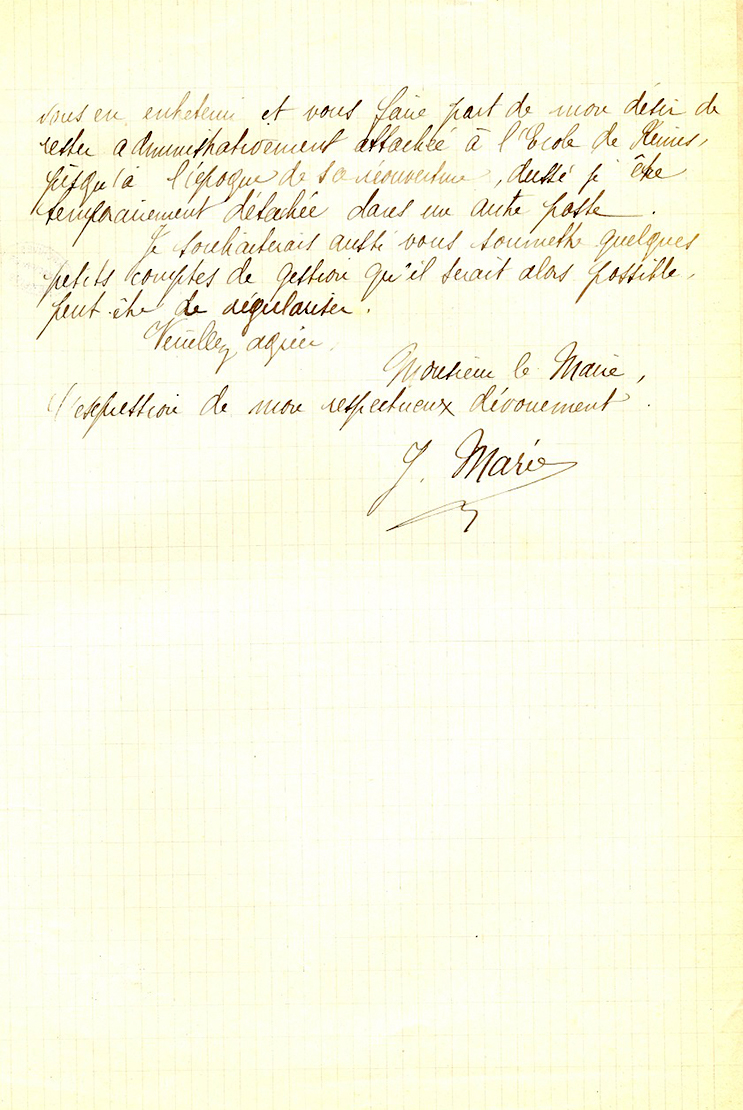 vous en entretenir et vous faire part de mon désir de
rester administrativement attachée à l'Ecole de Reims,
jusqu'à l'époque de sa réouverture, dussé je être
temporairement détachée dans un autre poste.
Je souhaiterais aussi vous soumettre quelques
petits comptes de gestion qu'il serait alors possible,
peut-être de régulariser.
Veuillez agréer,
Monsieur le Maire,
l'expression de mon respectueux dévouement.
J. Marie